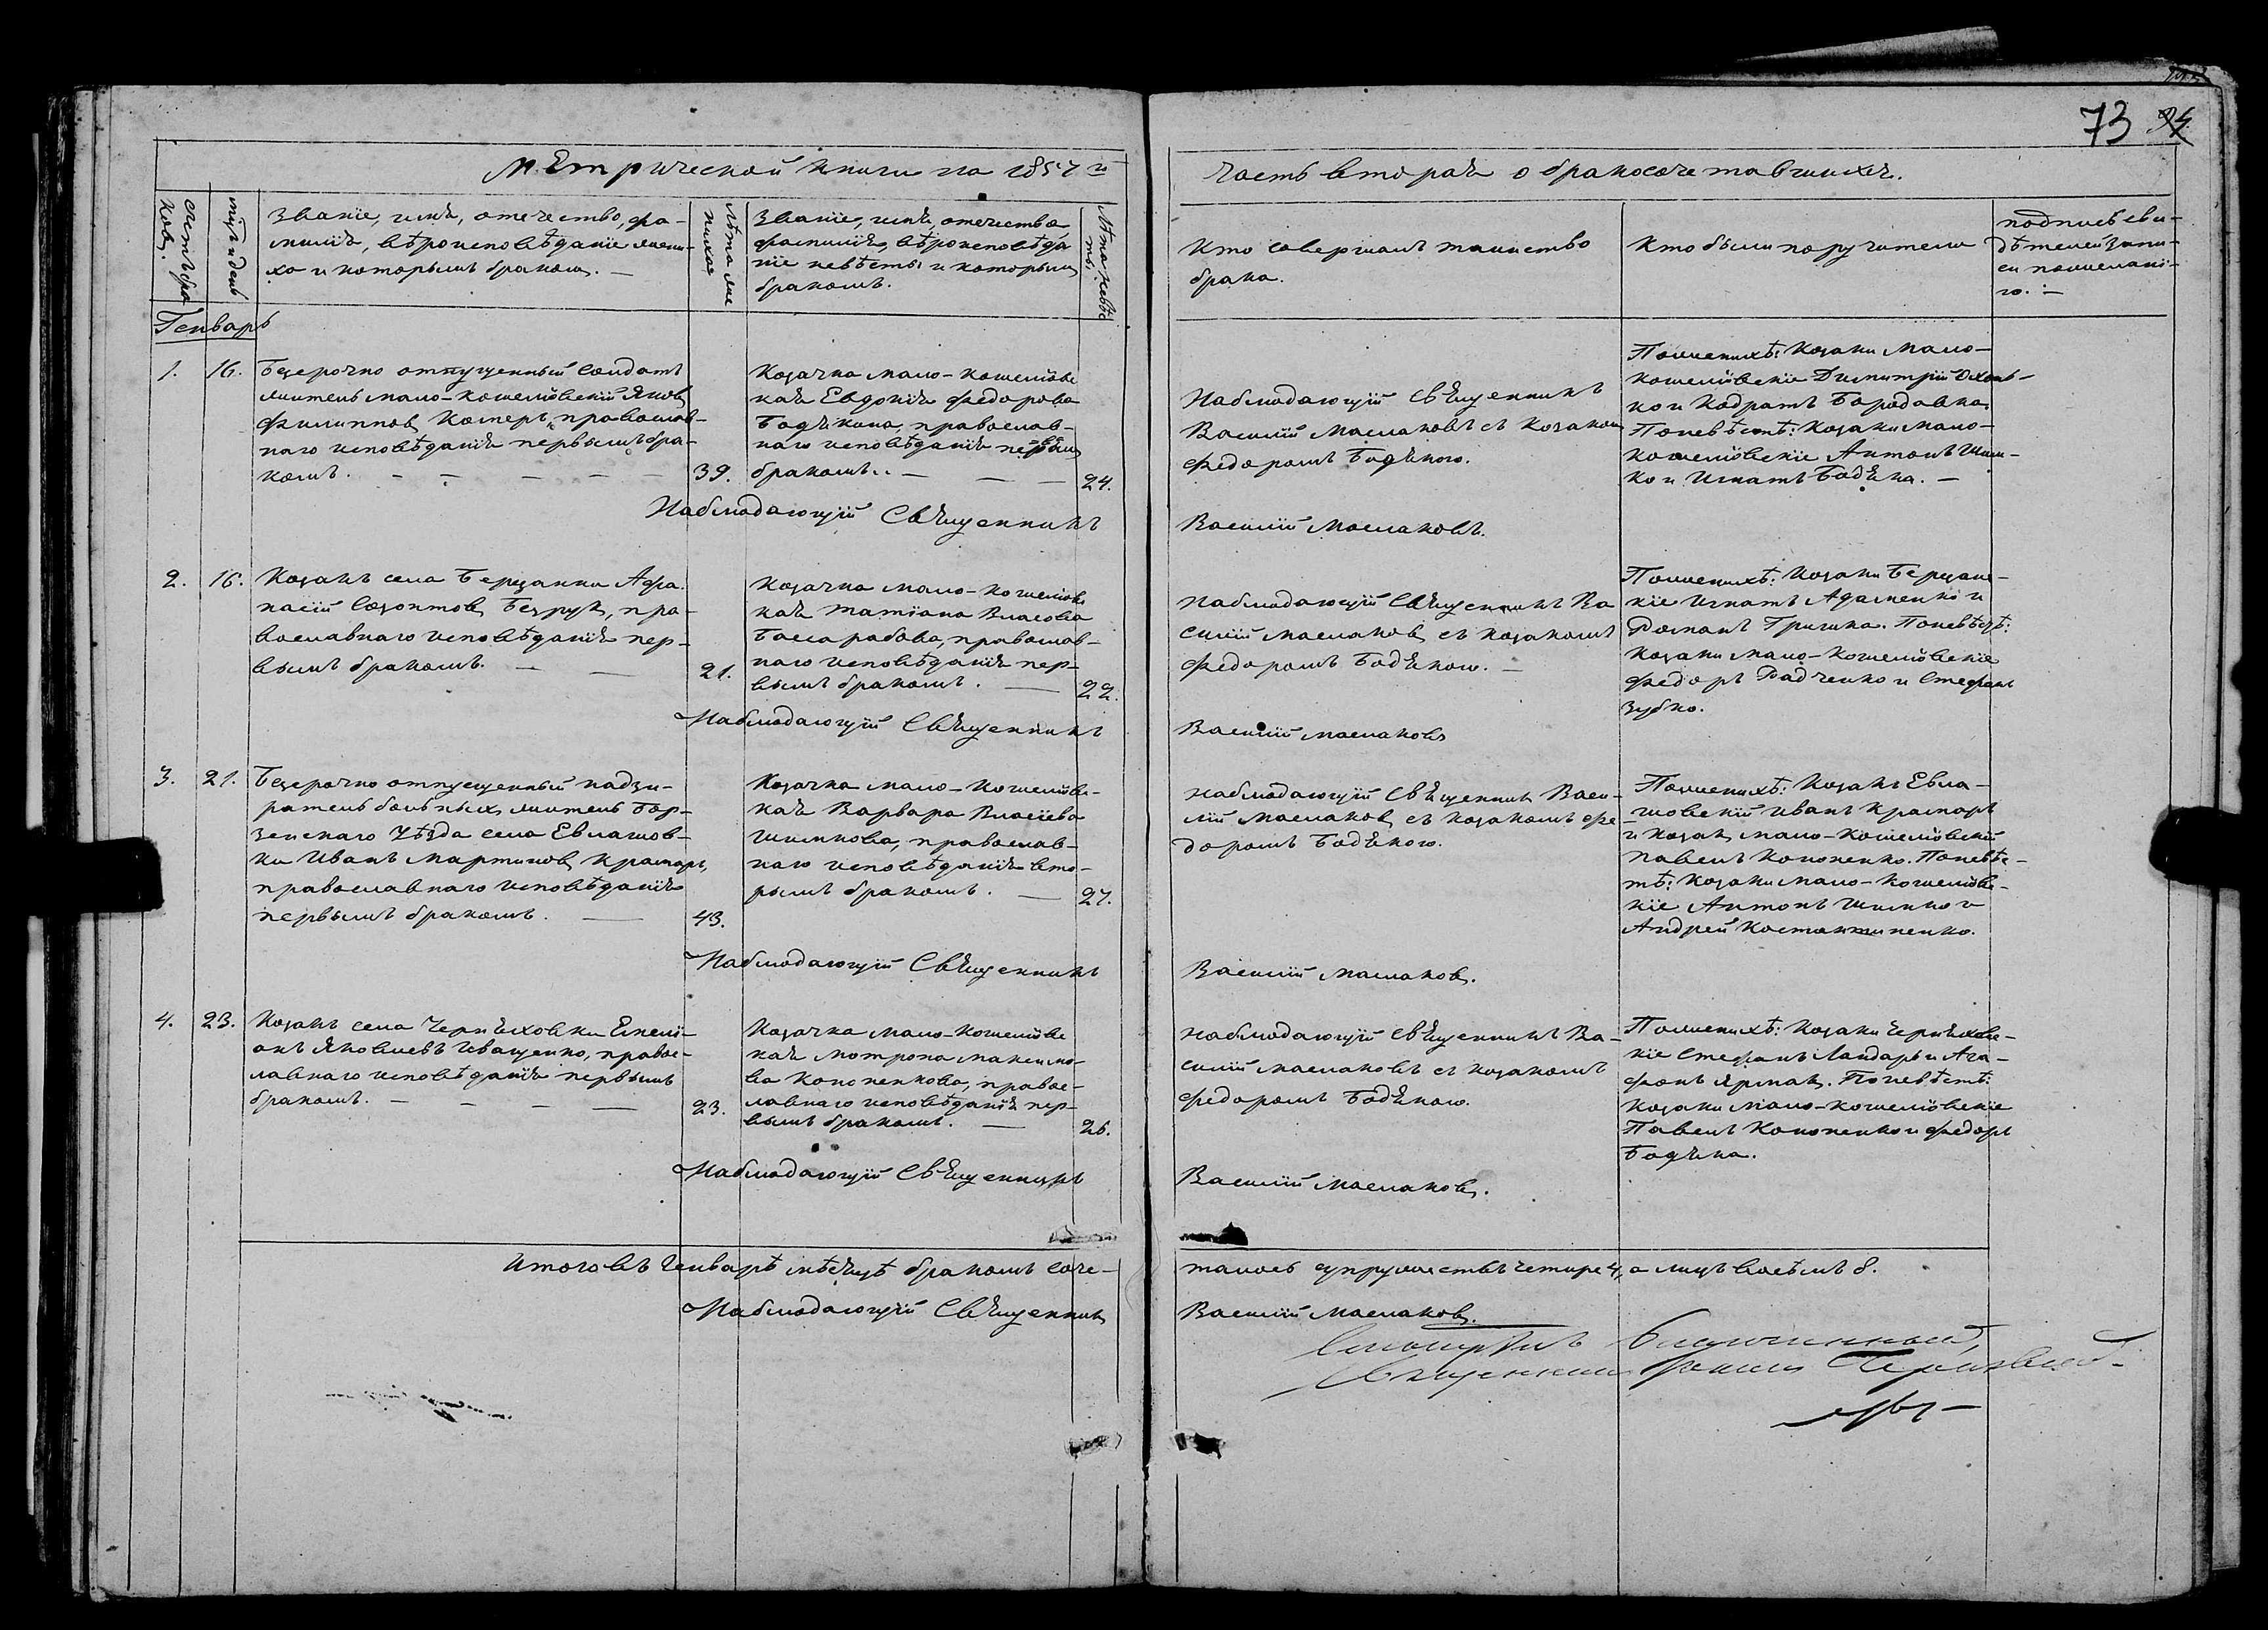 73 94
Метрической книги на 1857й
часть вторая о бракосочетавшихся.
счетъ бра
ковъ.
мѣсяцъ и день
Званіе, имя, отечество, фа-
милія, вѣроисповѣданіе жени-
ха и которымъ бракомъ. —
Лѣта же
ниха
Званіе, имя, отечество,
фамилія, вѣроисповѣда
ніе невѣсты и которымъ
бракомъ.
Лѣта невѣс
ты
Кто совершалъ таинство
брака.
Кто были поручители
подпись сви-
дѣтелей запи-
си по желані-
ю. —
Генварь
1.
16.
Безсрочно отпущенный солдатъ
житель мало-кошелівскій Яковъ
Филипповъ Кохтеръ, православ-
наго исповѣданія первымъ бра-
комъ. — — — — —
39.
Козачка мало-кошелівс
кая Евдокія Федорова
Бодякова, православ-
наго исповѣданія первым
бракомъ. — — —
24.
Наблюдающій Священникъ
Василій Маслаковъ съ Козаком
Федоромъ Бодякою.
По женихѣ: Козаки Мало-
кошелівскіе Димитрій
ко и Кодратъ Бородавка
По невѣстѣ: Козаки мало-
кошелівскіе Антонъ Шим-
ко и Игнатъ Бодяка. —
Наблюдающій Священникъ
Василій Маслаковъ.
2.
16.
Козакъ села Березанки Афа-
насій Созонтовъ Безрукъ, пра-
вославнаго исповѣданія пер-
вымъ бракомъ. — —
21.
Козачка мало-кошелівс
кая Татіана Власова
Бассарабова, православ-
наго исповѣданія пер-
вымъ бракомъ. —
22.
Наблюдающій Священникъ Ва
силій Маслаковъ съ козакомъ
Федоромъ Бодякою. —
По женихѣ: Козаки Березанс-
кіе Игнатъ Адаменко и
Романъ Гришка. По невѣстѣ:
козаки мало-кошелівскіе
Федоръ Радченко и Стефанъ
Зубко.
Наблюдающій Священникъ
Василій Маслаковъ
3.
21.
Безсрочно отпущенный надзи-
ратель больныхъ житель Бор-
зенскаго Уѣзда села Евлашов-
ки Иванъ Мартиновъ Крамаръ,
православнаго исповѣданія
первымъ бракомъ. —
43.
Козачка мало-кошелівс-
кая Варвара Власіева
Шимкова, православ-
наго исповѣданія вто-
рымъ бракомъ. —
27.
Наблюдающій Священникъ Васи-
лій Маслаковъ съ козакомъ Фе-
доромъ Бодякою.
По женихѣ: Козакъ Евла-
шовскій Иванъ Крамаръ
и козакъ мало-Кошелівскій
Павелъ Кононенко. По невѣс-
тѣ: Козаки мало-кошелівс-
кіе Антонъ Шимко и
Андрей Костантиненко.
Наблюдающій Священникъ
Василій Маслаковъ.
4.
23.
Козакъ села Черняховки Емелі-
анъ Яковлевъ Иващенко, правос-
лавнаго исповѣданія первымъ
бракомъ. — — — —
23.
Козачка мало-Кошелівс
кая Мотрона Максимо-
ва Кононенкова, правос-
лавнаго исповѣданія пер-
вымъ бракомъ. —
26.
Наблюдающій Священникъ Ва-
силій Маслаковъ съ козакомъ
Федоромъ Бодякою.
По женихѣ: Козаки Черняховс-
кіе Стефанъ Ландарь и Ага-
фонъ Ярмакъ. По невѣстѣ:
козаки мало-кошелівскіе
Павелъ Кононенко и Федоръ
Бодяка.
Наблюдающій Священникъ
Василій Маслаковъ.
Итого въ Генварѣ мѣсяцѣ бракомъ соче-
талось супружествъ четире 4, а лицъ восѣмъ 8.
Наблюдающій Священникъ
Василій Маслаковъ.
Благочинный,
Священникъ